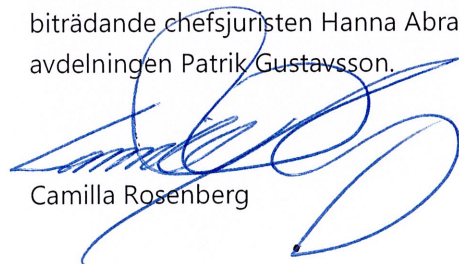 biträdande chefsjuristen Hanna Abra
avdelningen Patrik Gustavsson.
Camilla Rosenberg